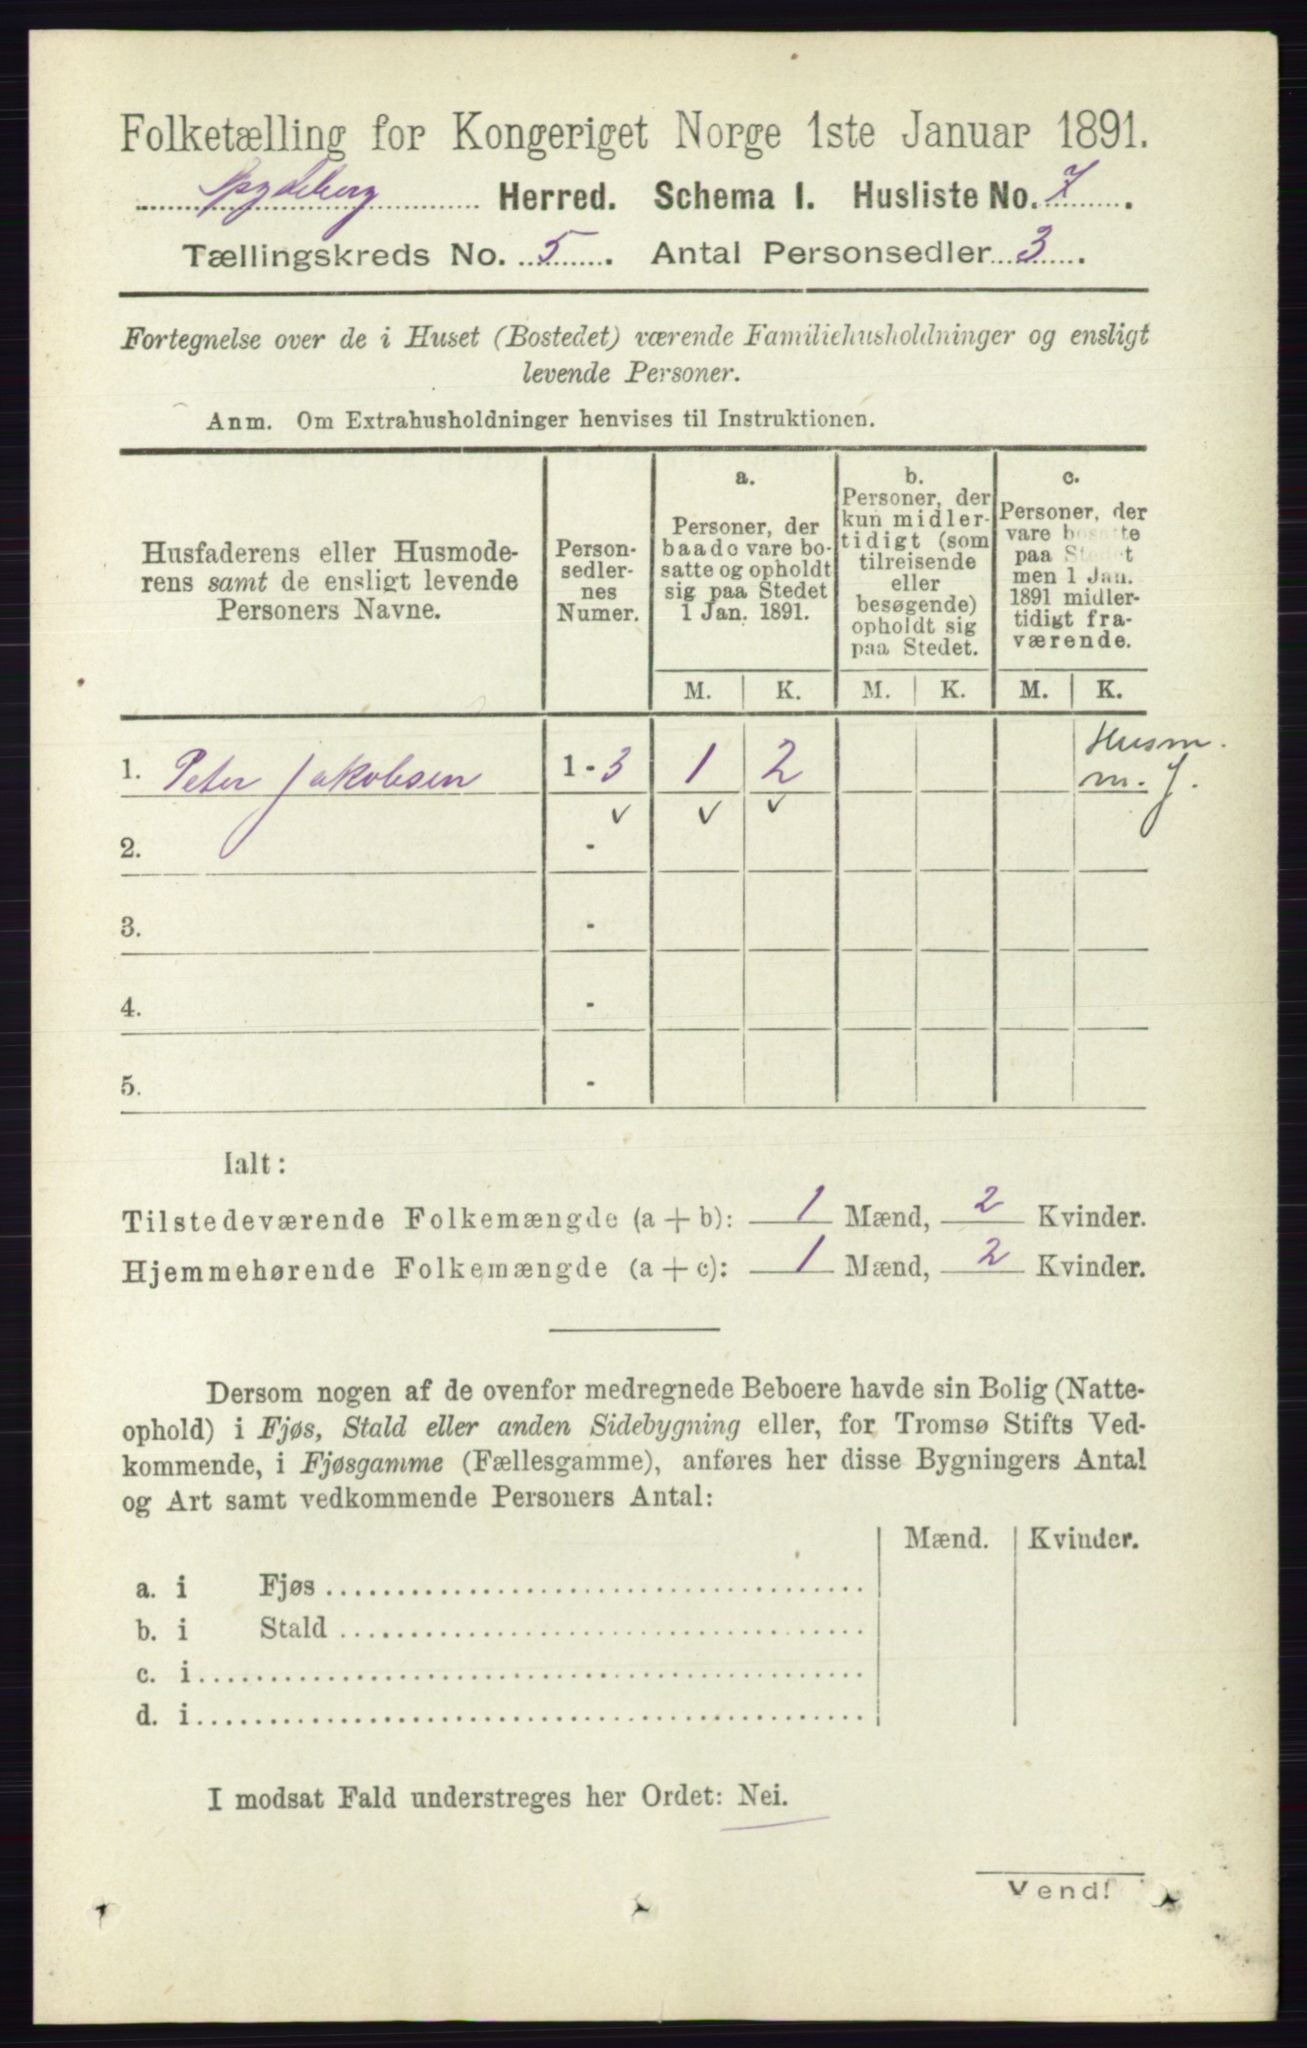 Folketælling for Kongeriget Norge 1ste Januar 1891.
Spydeberg Herred. Schema I. Husliste No. 7.
Tællingskreds No. 5. Antal Personsedler 3.
Fortegnelse over de i Huset (Bostedet) værende Familiehusholdninger og ensligt
levende Personer.
Anm. Om Extrahusholdninger henvises til Instruktionen.
Husfaderens eller Husmode-
rens samt de ensligt levende
Personers Navne.
Person-
sedler-
nes
Numer.
a.
Personer, der
baade vare bo-
satte og opholdt
sig paa Stedet
1 Jan. 1891.
b.
Personer, der
kun midler-
tidigt (som
tilreisende
eller
besøgende)
opholdt sig
paa Stedet.
c.
Personer, der
vare bosatte
paa Stedet
men 1 Jan.
1891 midler-
tidigt fra-
værende.
M. K. M. K. M. K.
1. Peter Jakobsen 1-3 1 2 Husm.
m. J.
✓ ✓ ✓
2. -
3. -
4. -
5. -
Ialt:
Tilstedeværende Folkemængde (a + b): 1 Mænd, 2 Kvinder.
Hjemmehørende Folkemængde (a + c): 1 Mænd, 2 Kvinder.
Dersom nogen af de ovenfor medregnede Beboere havde sin Bolig (Natte-
ophold) i Fjøs, Stald eller anden Sidebygning eller, for Tromsø Stifts Ved-
kommende, i Fjøsgamme (Fællesgamme), anføres her disse Bygningers Antal
og Art samt vedkommende Personers Antal:
Mænd. Kvinder.
a. i Fjøs
b. i Stald
c. i
d. i
I modsat Fald understreges her Ordet: Nei.
Vend!